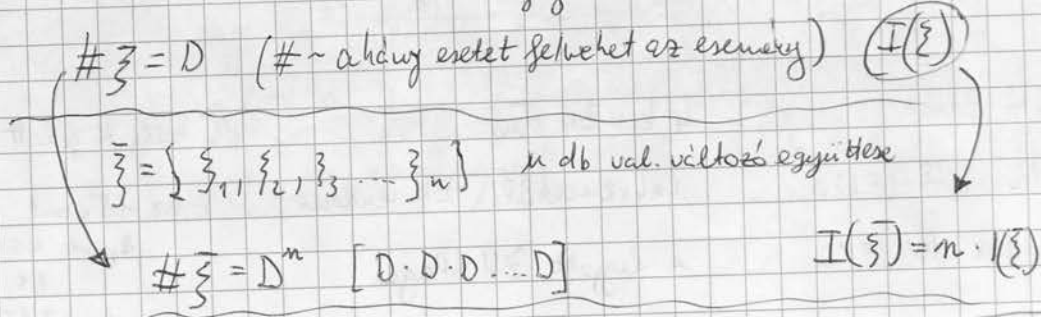 #ξ = D (# ~ ahány esetet felvehet az esemény) I(ξ)
ξ̄ = {ξ₁, ξ₂, ξ₃ ... ξₙ} n db val. változó együttese
#ξ̄ = Dⁿ [D·D·D....D] I(ξ̄) = n · I(ξ)